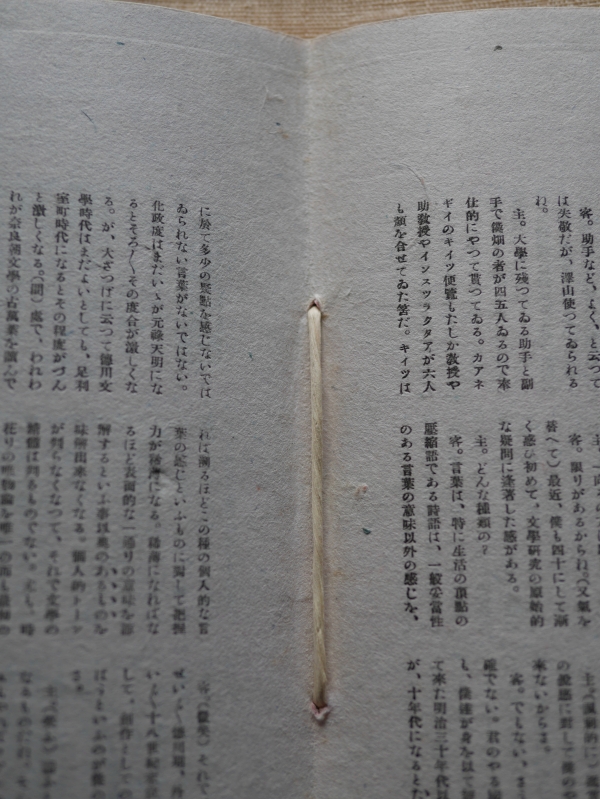 客。助手など、よく、と云つて
は失敬だが、澤山使つてゐられる
ね。
主。大學に殘つてゐる助手と副
手で儂畑の者が四五人ゐるので奉
仕的にやつて貰つてゐる。カアネ
ギイのキイツ便覽もたしか敎授や
助敎授やインスツラクタアが六人
も顏を合せてゐた筈だ。キイツは
客。限りがあるからね。(又氣を
替へて)最近、儂も四十にして漸
く感じ初めて、文學硏究の原始的
な疑問に逢著した感がある。
主。どんな種類の?
客。言葉は、特に生活の頂點の
壓縮語である詩語は、一般妥當性
のある言葉の意味以外の感じを、
來ないからさ。
客。でもない。
確でない。君のやる
も、儂達が身を以て
て來た明治三十年代以
が、十年代になると、
に於て多少の整點を感じないでは
ゐられない言葉がないではない。
化政度はまだいゝが元祿天明にな
るとそろ〱その度合が激しくな
る。が、大ざつぱに云つて德川文
學時代はまだよいとしても、足利
室町時代になるとその程度がづん
と激しくなる。(間)處で、われわ
れが奈良朝文學の古萬葉を讀んで
れば溯るほどこの種の個人的な言
葉の感じといふものに關して把握
力が稀薄になる。稀薄になればな
るほど表面的な一通りの意味を諒
解するといふ事以奧のあるものを
味解出來なくなる。個人的トーン
が判らなくなつて、それで文學の
判るものでない。尤も、時
客(微笑)それで
して、創作としての
さ。